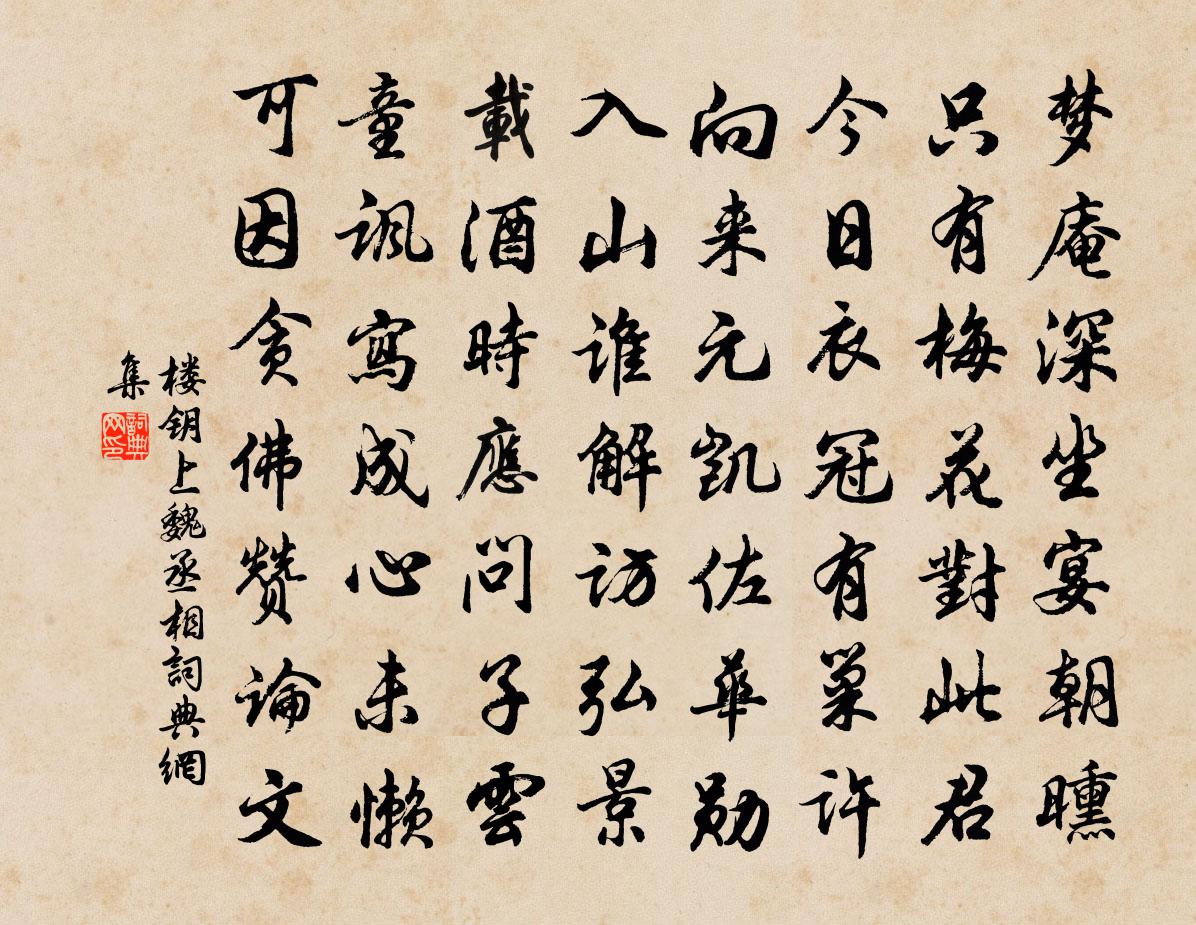 梦庵深坐宴朝曛
只有梅花對此君
今日衣冠有巢许
向来元凯佐華勋
入山谁解访弘景
載酒時應問子雲
童諷寫成心未懒
可因贪佛赞論文
楼钥上魏丞相詞典網
集
詞典网印